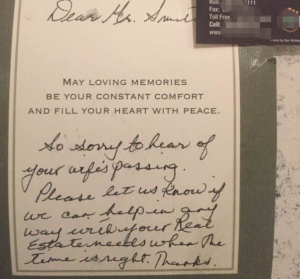 Dear Mr. Smit
Fax:
Toll Free
Cell:
www
MAY LOVING MEMORIES
BE YOUR CONSTANT COMFORT
AND FILL YOUR HEART WITH PEACE.
So sorry to hear of
your wife's passing.
Please let us know if
we can help in any
way with your Real
Estate needs when the
time is right. Thanks.